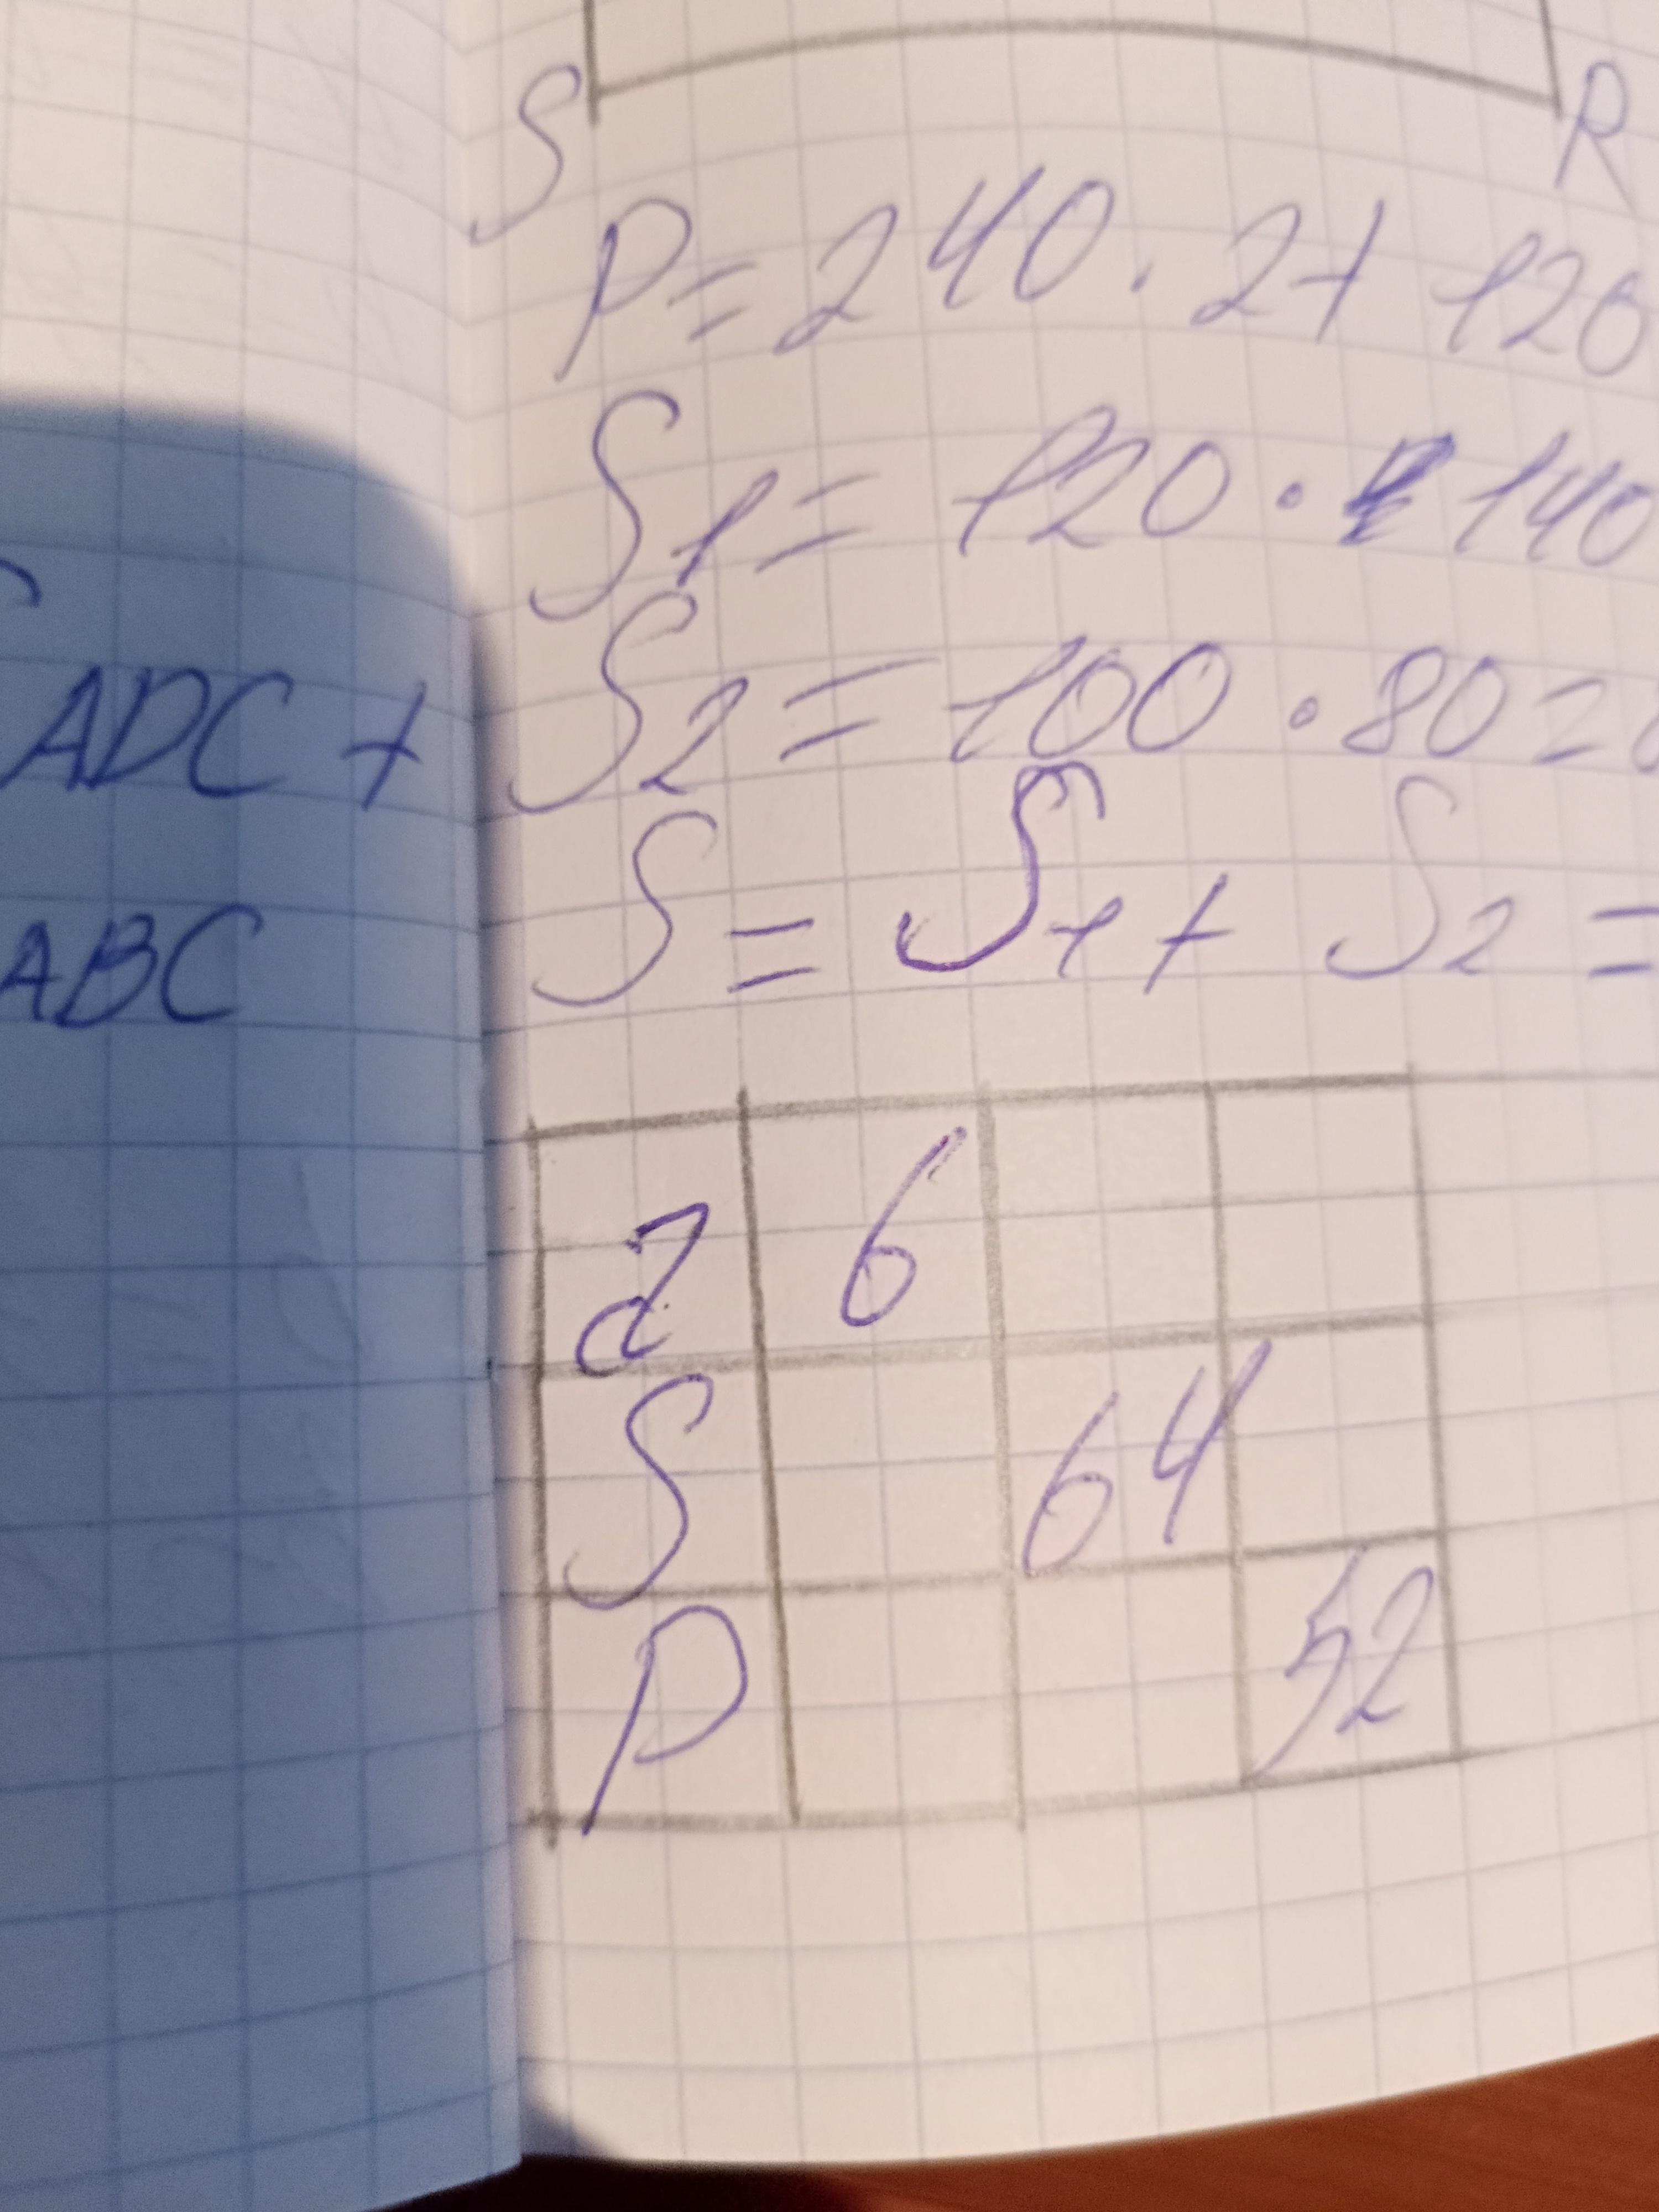 ADC +
ABC
S R
P = 240 · 2 + 120
S1 = 120 · 140
S2 = 100 · 80 =
S = S1 + S2 =
a 6
S 64
P 52